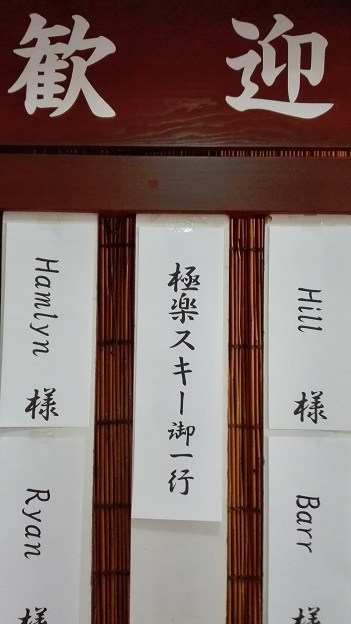 歓迎
Hill 様
Barr 様
極楽スキー御一行
Hamlyn 様
Ryan 様